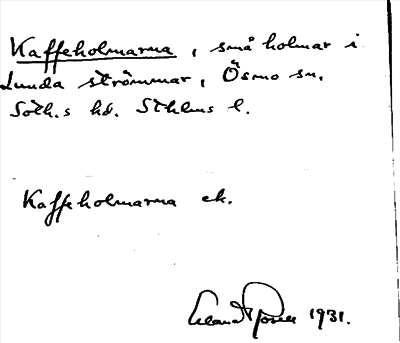 Kaffeholmarna, små holmar i
Lunda strömmar, Ösmo sn.
Soth.s hd. Sthlms l.
Kaffeholmarna ek.
1931.